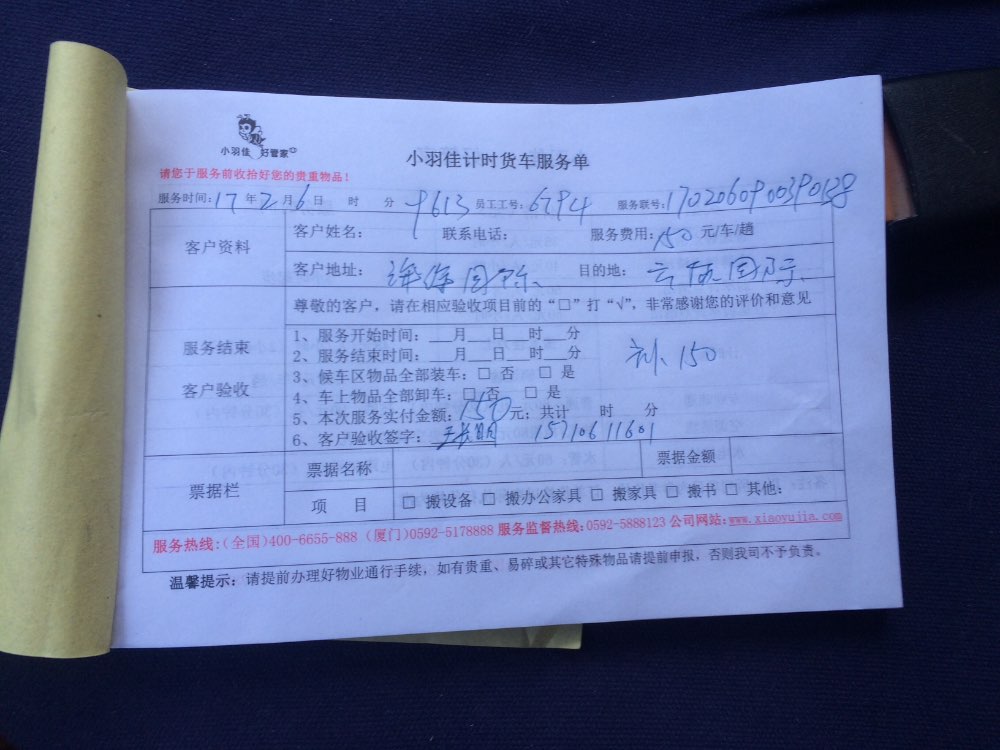 小羽佳 好管家
小羽佳计时货车服务单
请您于服务前收拾好您的贵重物品！
服务时间：17年2月6日 时 分 9613 员工工号：6794 服务联号：1702060900390138
客户资料
客户姓名： 联系电话： 服务费用：150元/车/趟
客户地址： 国际 目的地： 国际
尊敬的客户，请在相应验收项目前的“□”打“√”，非常感谢您的评价和意见
服务结束
客户验收
1、服务开始时间：___月___日___时___分
2、服务结束时间：___月___日___时___分
补150
3、候车区物品全部装车：□ 否 □ 是
4、车上物品全部卸车：□ 否 □ 是
5、本次服务实付金额：150元；共计 时 分
6、客户验收签字： 15710611601
票据栏
票据名称 票据金额
项 目 □ 搬设备 □ 搬办公家具 □ 搬家具 □ 搬书 □ 其他：
服务热线:(全国)400-6655-888 (厦门)0592-5178888 服务监督热线:0592-5888123 公司网站:www.xiaoyujia.com
温馨提示：请提前办理好物业通行手续，如有贵重、易碎或其它特殊物品请提前申报，否则我司不予负责。